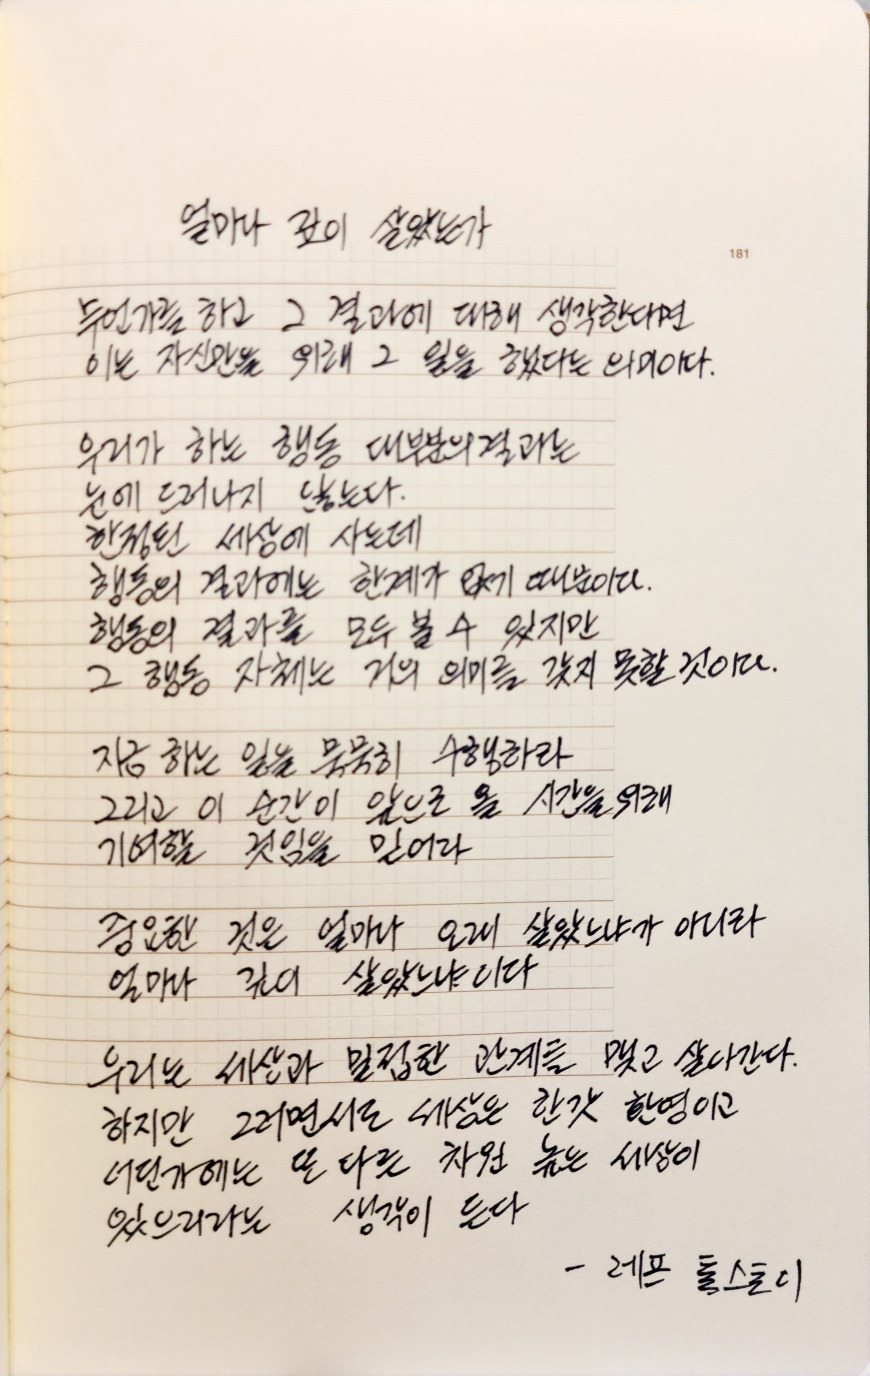 얼마나 깊이 살았는가
181
무언가를 하고 그 결과에 대해 생각한다면
이는 자신만을 위해 그 일을 했다는 의미이다.
우리가 하는 행동 대부분의 결과는
눈에 드러나지 않는다.
한정된 세상에 사는데
행동의 결과에는 한계가 없기 때문이다.
행동의 결과를 모두 볼 수 있지만
그 행동 자체는 거의 의미를 갖지 못할 것이다.
지금 하는 일을 묵묵히 수행하라
그리고 이 순간이 앞으로 올 시간을 위해
기여할 것임을 믿어라
중요한 것은 얼마나 오래 살았느냐가 아니라
얼마나 깊이 살았느냐이다
우리는 세상과 밀접한 관계를 맺고 살아간다.
하지만 그러면서도 세상은 한갓 환영이고
어딘가에는 또 다른 차원 높은 세상이
있으리라는 생각이 든다
- 레프 톨스토이